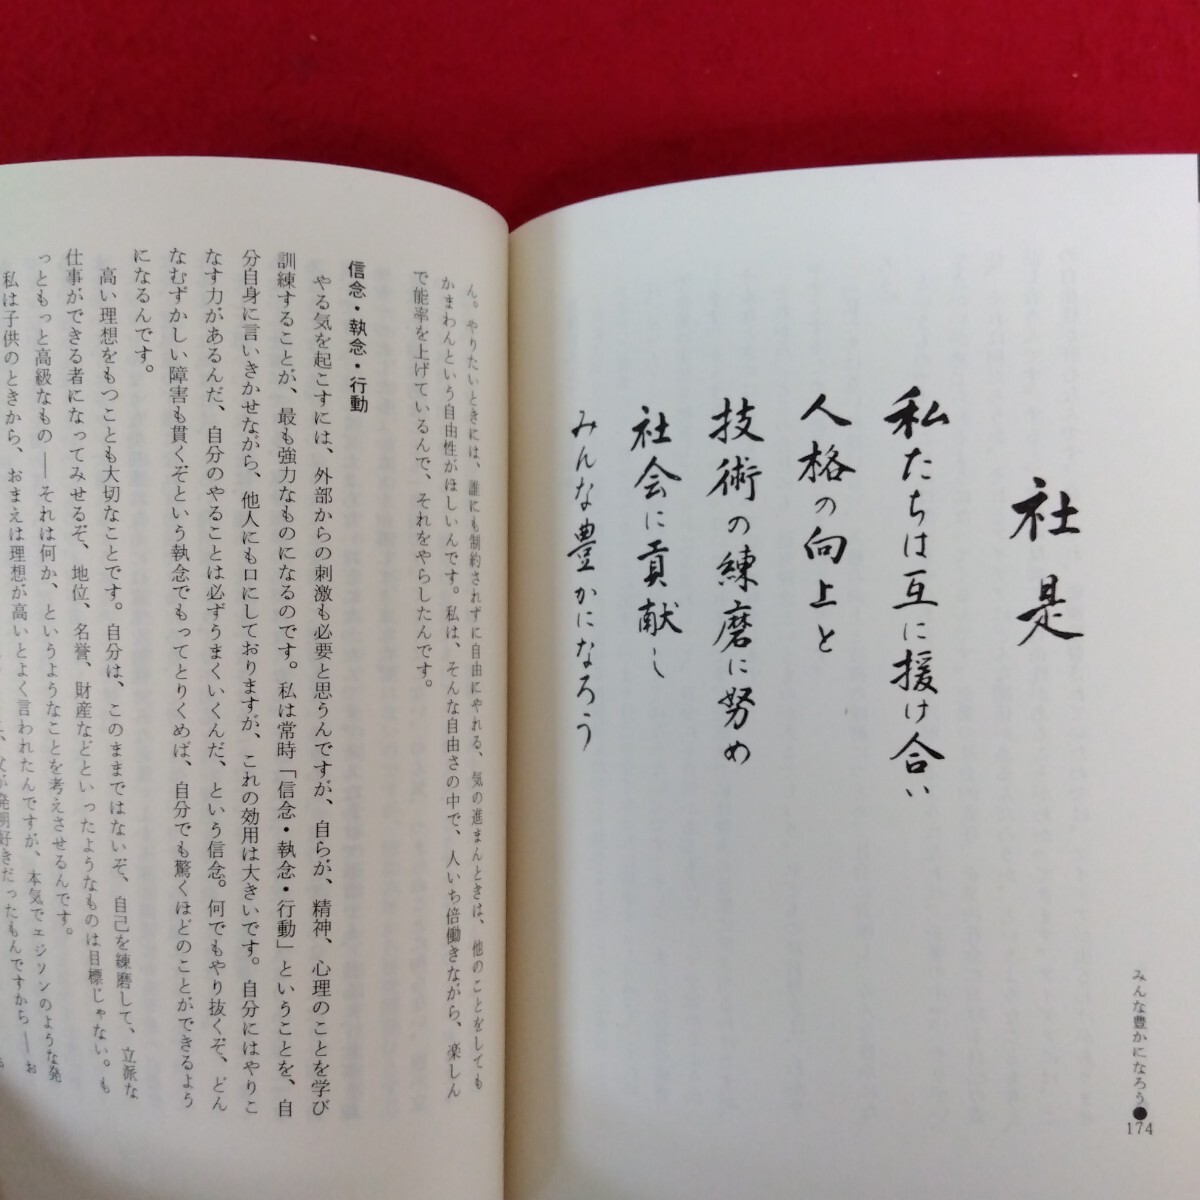 社是
私たちは互に援け合い
人格の向上と
技術の練磨に努め
社会に貢献し
みんな豊かになろう
みんな豊かになろう●174
ん。やりたいときには、誰にも制約されずに自由にやれる、気の進まんときは、他のことをしても
かまわんという自由性がほしいんです。私は、そんな自由さの中で、人いち倍働きながら、楽しん
で能率を上げているんで、それをやらしたんです。
信念・執念・行動
やる気を起こすには、外部からの刺激も必要と思うんですが、自らが、精神、心理のことを学び
訓練することが、最も強力なものになるのです。私は常時「信念・執念・行動」ということを、自
分自身に言いきかせながら、他人にも口にしておりますが、これの効用は大きいです。自分にはやりこ
なす力があるんだ、自分のやることは必ずうまくいくんだ、という信念。何でもやり抜くぞ、どん
なむずかしい障害も貫くぞという執念でもってとりくめば、自分でも驚くほどのことができるよう
になるんです。
高い理想をもつことも大切なことです。自分は、このままではないぞ、自己を練磨して、立派な
仕事ができる者になってみせるぞ、地位、名誉、財産などといったようなものは目標じゃない。も
っともっと高級なもの――それは何か、というようなことを考えさせるんです。
私は子供のときから、おまえは理想が高いとよく言われたんですが、本気でエジソンのような発
父が発明好きだったもんですから――お